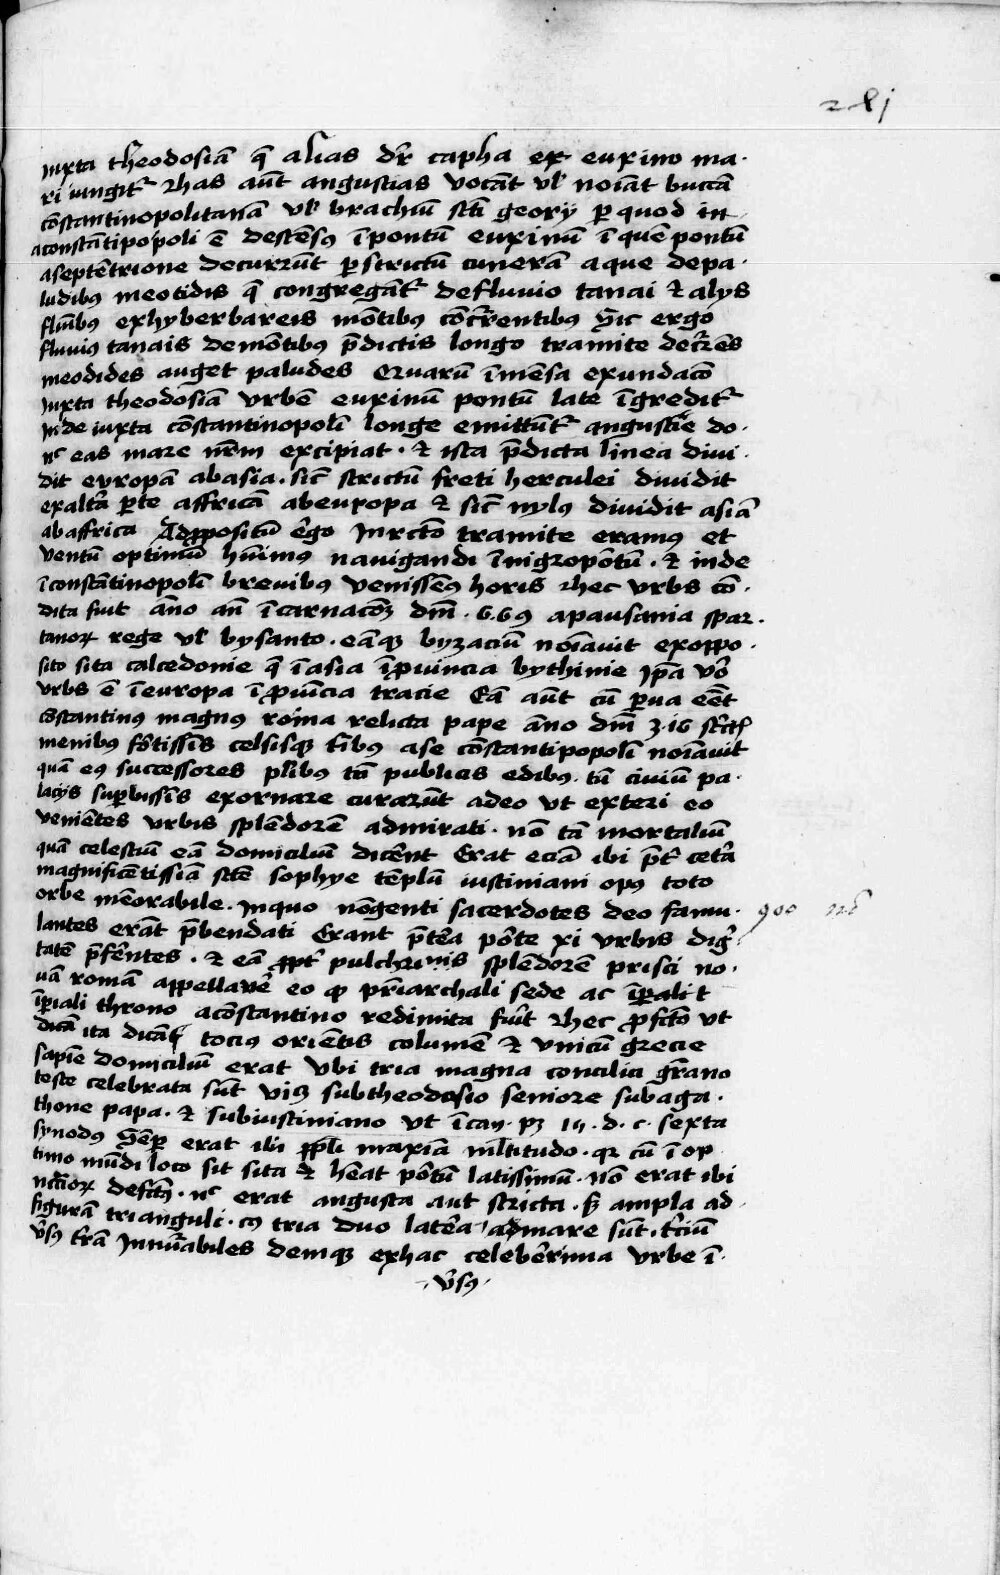 xlj
iuxta theodosiā q̄ alias dr̄ capha ex euxino ma·
ri iungit᷑ 2has aūt angustias vocāt vl̓ noiāt buccā
cōstantinopolitanā vl̓ brachiū sc̄ti georij p̱ quod in
aconstātipo'poli ē descēsꝰ ī pontū euxinū ī quē pontū
aseptētrione decurrūt p̱ strictū cunerā aque depa·
ludibꝰ meotidis q̄ congregāt᷑ defluuio tanai & alys
fluīibꝰ exhyberbareis mōtibꝰ cōcr̄rentibꝰ hic ergo
fluuiꝰ tanais demōtibꝰ p̄dictis longo tramite decr̄rēs
meodides auget paludes Quarū īmēsa exundacō
iuxta theodosiā vrbē euxinū pontū late īgredit᷑
inde iuxta cōstantinopolī longe emittūt᷑ angustie do·
nc̄ eas mare nr̄m excipiat · & ista p̄dicta linea diui·
dit europā abasia · sic̄ strictū freti herculei diuidit
exalt̄a p̱te affricā abeuropa & sic̄ nylꝰ diuidit asiā
abaffrica Adp̱positū ēgo inrc̄to tramite eramꝰ et
ventū optimū hūimꝰ nauigandi īnigropōtū · & inde
īconstātinopolī breuibꝰ venissēꝰ horis 2hec vrbs cō·
dita fuit āno an̄ īcarnacōꝫ dnī · 6·69 apausania spar·
tanoꝝ rege vl̓ bysanto · eāqꝫ byzaciū noīauit exoppo·
sito sita calcedonie q̄ īasia īp̱uincia bythinie ip̄a vō
vrbs ē īeuropa īp̱uīcia tracie Eā aūt cū p̱ua eēt
cōstantinꝰ magnꝰ roma relicta pape āno dnī 3·16
menibꝰ fōtissīs celsisqꝫ t̄ribꝰ ase cōstantipopolī noīauit
quā eiꝰ successores pl̄ibꝰ tū publicis edibꝰ · tū ciuiū pa·
lacijs sup̱bissīs exornare curarūt adeo vt exteri eo
veniētes vrbis splēdorē admirati · nō tā mortaliū
quā celestiū eā domiciliū dicēnt Erat eciā ibi p̄t̓ cet̄a
magnificētissīā sc̄te sophye tēplū iustiniani opꝰ toto
orbe mēorabile · inquo nōgenti sacerdotes deo famu·
900 nō
lantes erāt p̄bendati Erant p̄t̄ea pōte xi vrbis dig̓
tatē p̄fērtes · & eā p̱pt̓ pulchri'nis splēdorē prisci no·
uā romā appellauē eo qp̱ pr̄iarchali sede ac īp̱ali t
īp̱iali throno aconstantino redimita fūit 2hec p̱fc̄to vt
dicā ita dicāt tociꝰ oriētis columē & vnicū grecie
sapīe domiciliū erat vbi tria magna concilia gr̄ano
teste celebrata sūt viꝫ subtheodosio seniore subaga·
thone papa · & subiustiniano vt īcaȳ · pꝫ 15 · d · c · sexta
synodꝰ Semp̱ erat ibi pp̄li maxīā ml̄titudo · qꝛ cū ī op
timo mūdi loco sit sita & hēat pōtū latissimū · nō erat ibi
nc̄cīoꝝ defc̄tꝰ · nc̄ erat angusta aut stricta · sꝫ ampla ad
figurā trianguli · cꝰ tria duo latēa admare sūt · t̄ciū
v̄sꝰ t̄rā innūabiles demqꝫ exhac celebērima vrbe ī·
·v̄sꝰ·